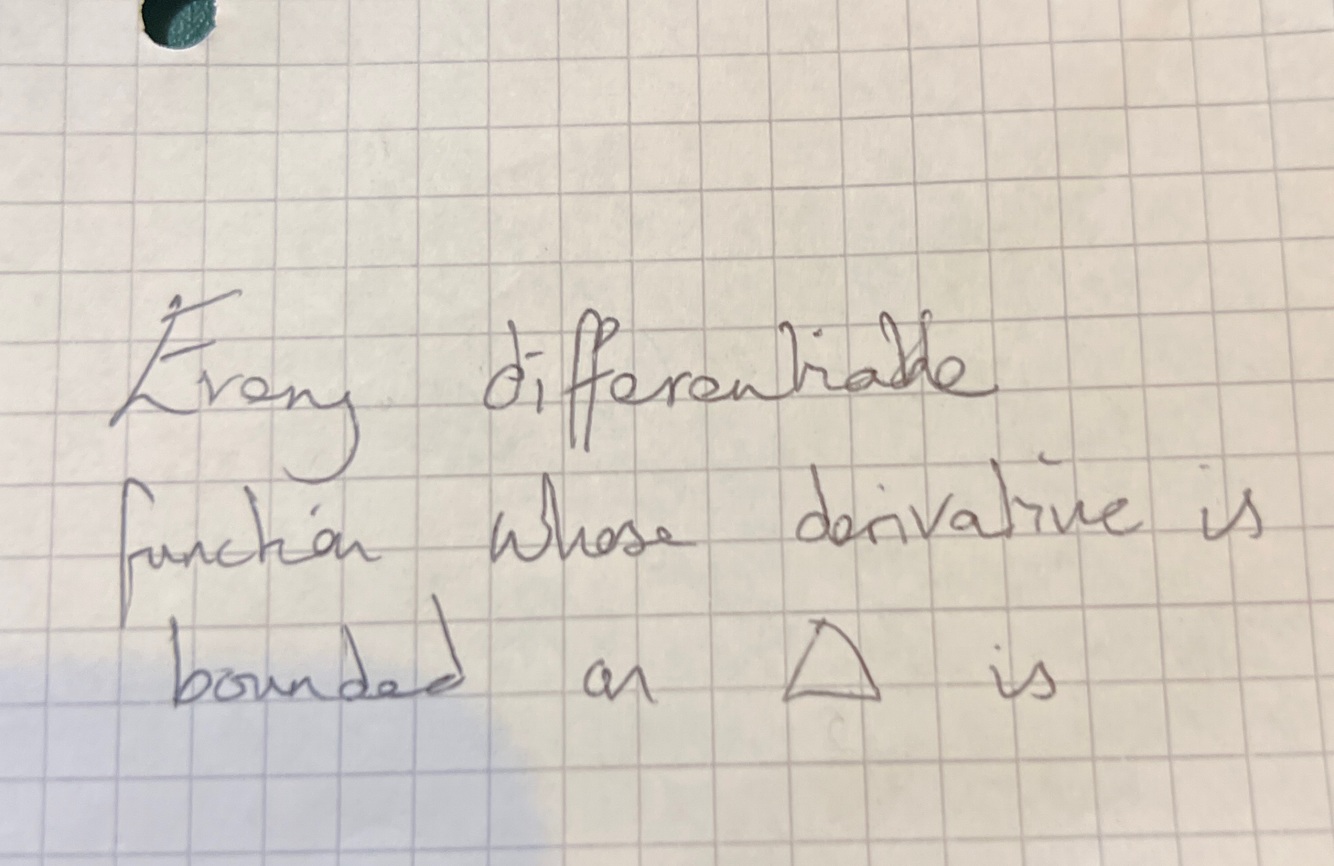 Every differentiable
function whose derivative is
bounded on Δ is